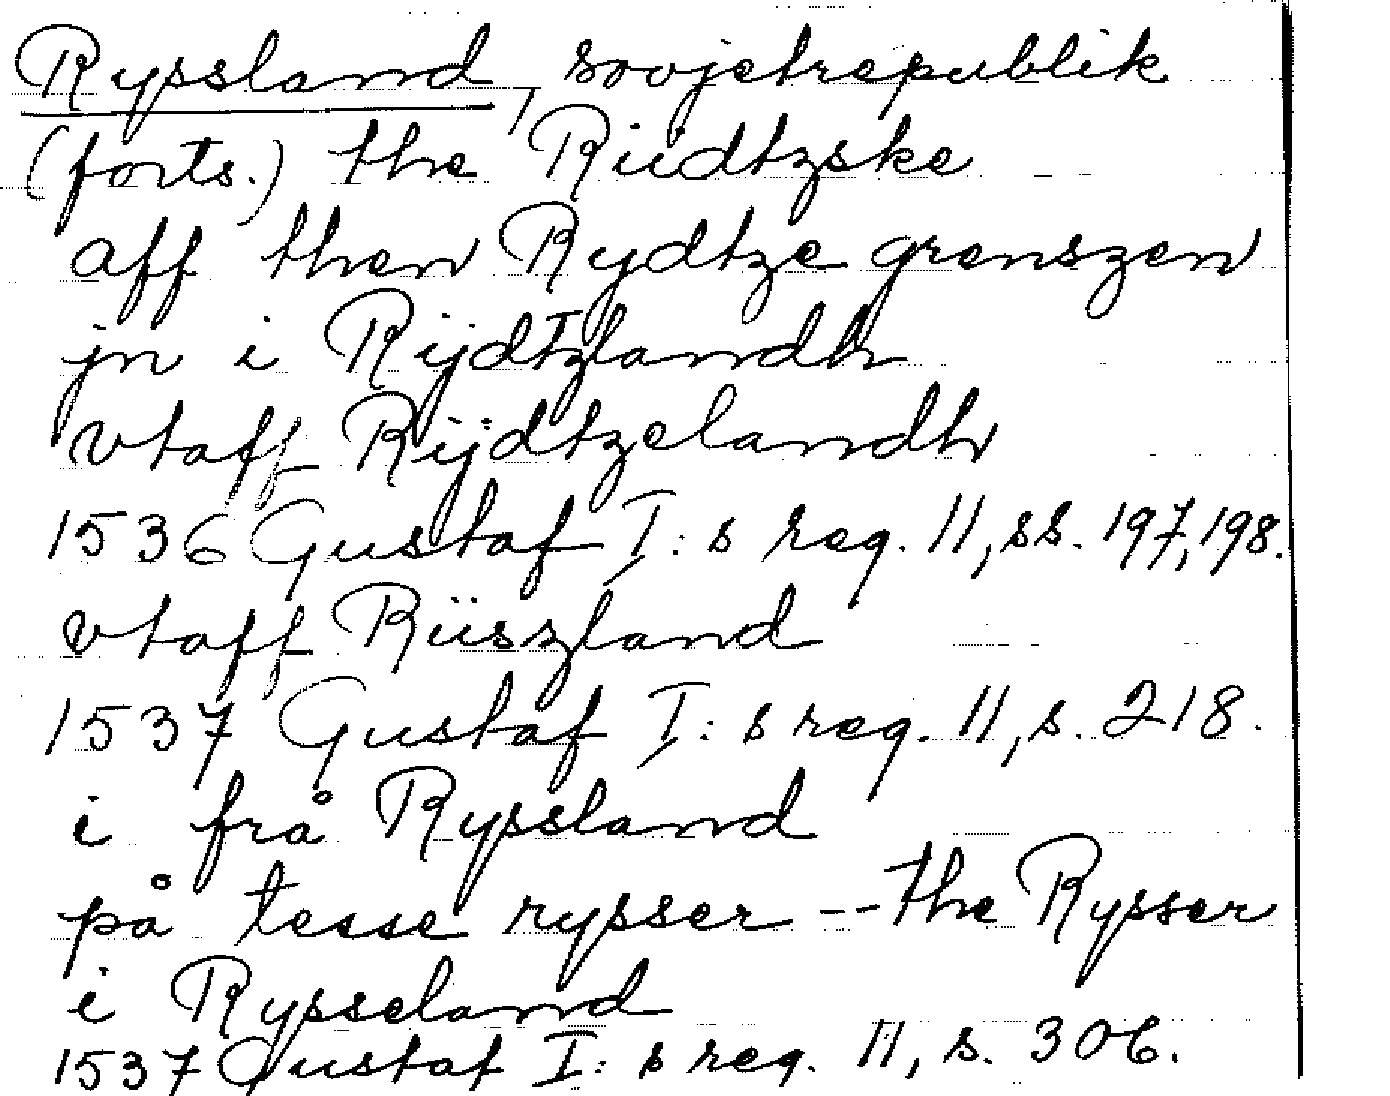 Ryssland, sovjetrepublik
(forts.) the Rüdtzske
aff then Rydtze grenszen
jn i Rijdtzlandh
vtaff Rijdtzelandh
1536 Gustaf I:s reg. 11, ss. 197, 198.
vtaff Rüszland
1537 Gustaf I:s reg. 11, s. 218.
i frå Ryssland
på tesse rysser -- the Rysser
i Rysseland
1537 Gustaf I:s reg. 11, s. 306.